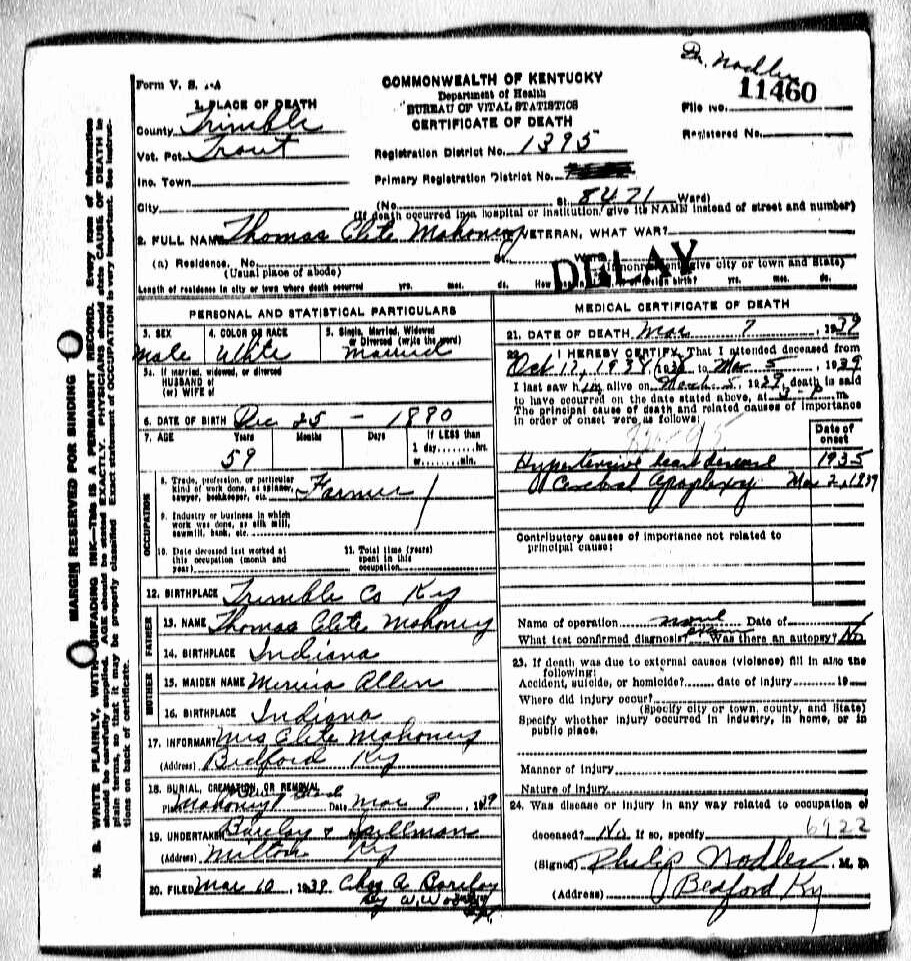 Dr. Nodler
Form V. S. 1-A
COMMONWEALTH OF KENTUCKY
Department of Health
BUREAU OF VITAL STATISTICS
CERTIFICATE OF DEATH
File No. 11460
Registered No.
1. PLACE OF DEATH
County Trimble
Vot. Pct. Trout
Inc. Town
City
Registration District No. 1395
Primary Registration District No.
(No. St. 8471 Ward)
(If death occurred in a hospital or institution, give its NAME instead of street and number)
2. FULL NAME Thomas Clite Mahoney VETERAN, WHAT WAR?
(a) Residence. No. St. Ward
(Usual place of abode) (If nonresident give city or town and State)
DELAY
Length of residence in city or town where death occurred yrs. mos. ds. How long in U. S., if of foreign birth? yrs. mos. ds.
PERSONAL AND STATISTICAL PARTICULARS
3. SEX Male
4. COLOR OR RACE White
5. Single, Married, Widowed or Divorced (write the word) Married
5a. If married, widowed, or divorced
HUSBAND of
(or) WIFE of
6. DATE OF BIRTH Dec 25 - 1880
7. AGE Years Months Days If LESS than
59 1 day hrs.
or min.
OCCUPATION
8. Trade, profession, or particular
kind of work done, as spinner,
sawyer, bookkeeper, etc. Farmer
9. Industry or business in which
work was done, as silk mill,
sawmill, bank, etc.
10. Date deceased last worked at
this occupation (month and
year)
11. Total time (years)
spent in this
occupation
12. BIRTHPLACE Trimble Co Ky
FATHER
13. NAME Thomas Clite Mahoney
14. BIRTHPLACE Indiana
MOTHER
15. MAIDEN NAME Allen
16. BIRTHPLACE Indiana
17. INFORMANT Mrs Clite Mahoney
(Address) Bedford Ky
18. BURIAL, CREMATION OR REMOVAL
Place Mahoney Date Mar 9, 1939
19. UNDERTAKER Barclay & Spillman
(Address) Milton Ky
20. FILED Mar 10, 1939 Chas A. Barclay
By W.
MEDICAL CERTIFICATE OF DEATH
21. DATE OF DEATH Mar 7 1939
22. I HEREBY CERTIFY, That I attended deceased from
Oct 17, 1938 to Mar 5, 1939
I last saw him alive on March 5, 1939, death is said
to have occurred on the date stated above, at 5- p m.
The principal cause of death and related causes of importance
in order of onset were as follows:
Date of
onset
Hypertensive heart disease 1935
Cerebral Apoplexy Mar 2, 1939
Contributory causes of importance not related to
principal cause:
Name of operation none Date of
What test confirmed diagnosis? exam Was there an autopsy? No
23. If death was due to external causes (violence) fill in also the
following:
Accident, suicide, or homicide? date of injury 19
Where did injury occur?
(Specify city or town, county, and State)
Specify whether injury occurred in industry, in home, or in
public place.
Manner of injury
Nature of injury
24. Was disease or injury in any way related to occupation of
deceased? No If so, specify 6922
(Signed) Philip Nodler M. D.
(Address) Bedford Ky
MARGIN RESERVED FOR BINDING
N. B. WRITE PLAINLY, WITH UNFADING INK—THIS IS A PERMANENT RECORD. Every item of information
should be carefully supplied. AGE should be stated EXACTLY. PHYSICIANS should state CAUSE OF DEATH in
plain terms, so that it may be properly classified. Exact statement of OCCUPATION is very important. See instruc-
tions on back of certificate.